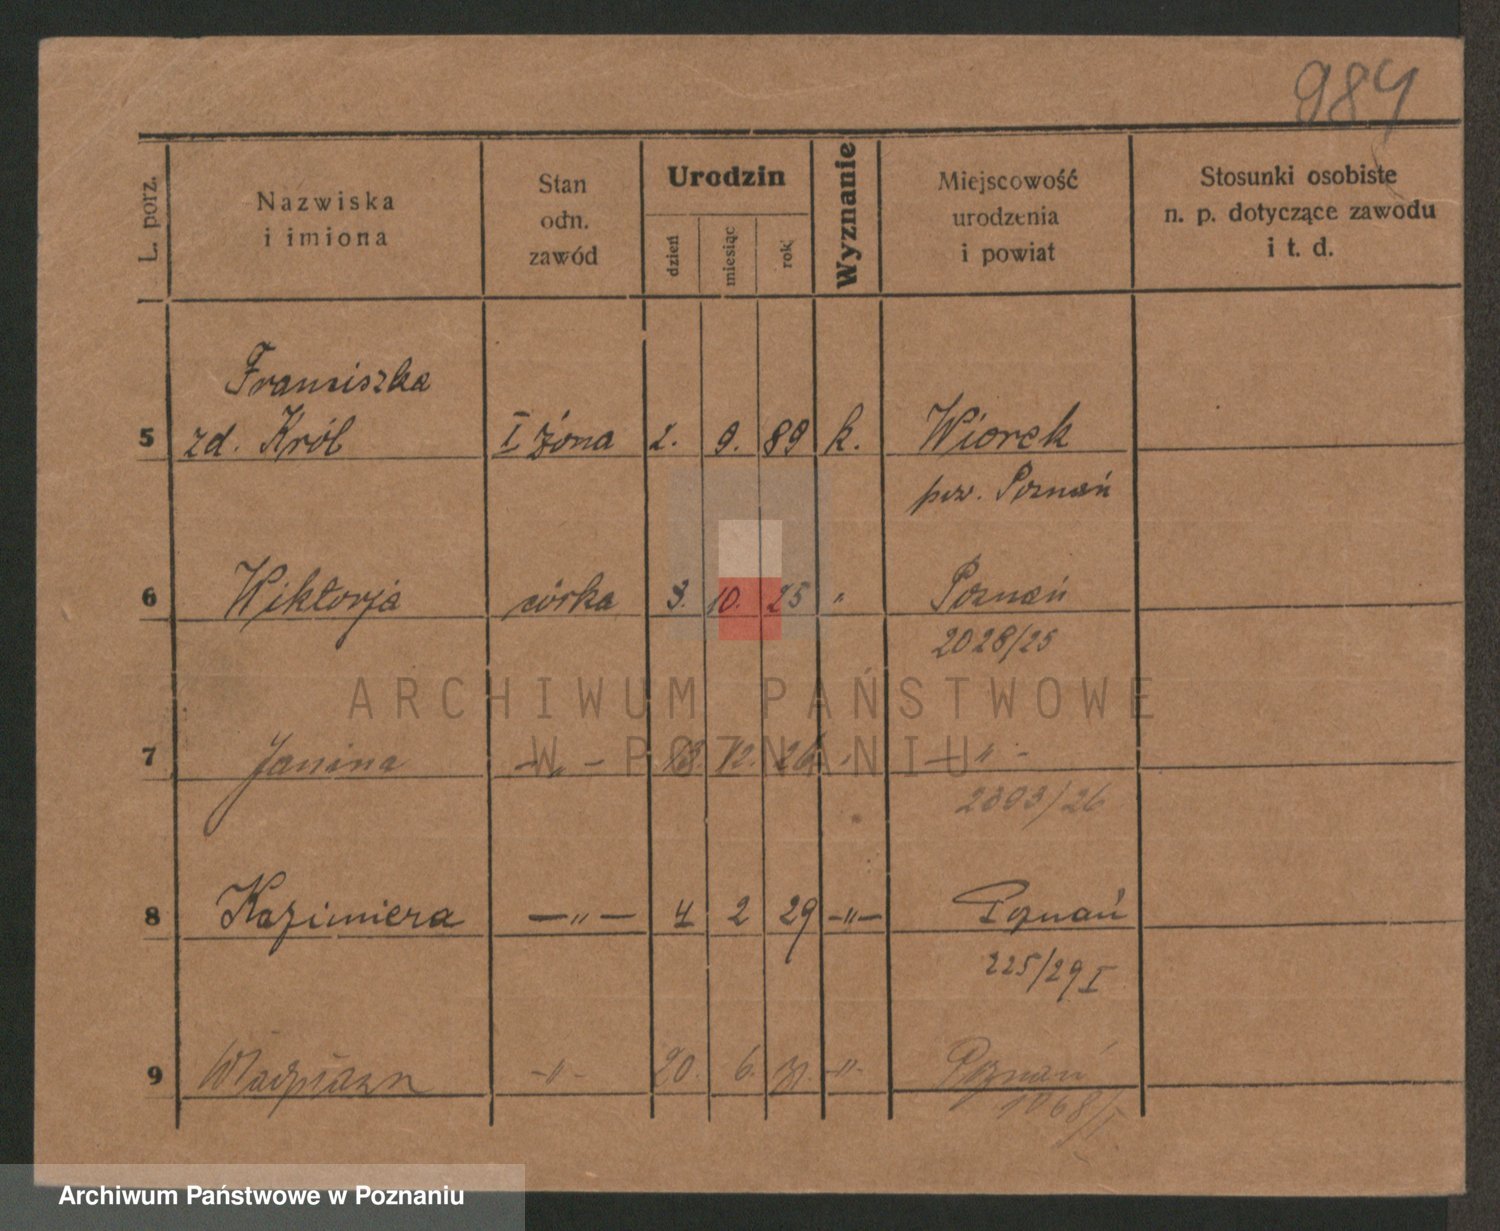 984
L. porz.
Nazwiska
i imiona
Stan
odn.
zawód
Urodzin
dzień
miesiąc
rok
Wyznanie
Miejscowość
urodzenia
i powiat
Stosunki osobiste
n. p. dotyczące zawodu
i t. d.
Franciszka
5 zd. Król I żona 2. 9. 89 k. Wiorek
pow. Poznań
6 Wiktorja córka 3. 10. 25 " Poznań
2028/25
7 Janina —„— 13. 12. 26 " —„—
2303/26
8 Kazimiera —„— 4 2 29 —„— Poznań
225/29 I
9 —„— 20. 6. 31. —„— Poznań
1068/I
ARCHIWUM PAŃSTWOWE
W POZNANIU
Archiwum Państwowe w Poznaniu